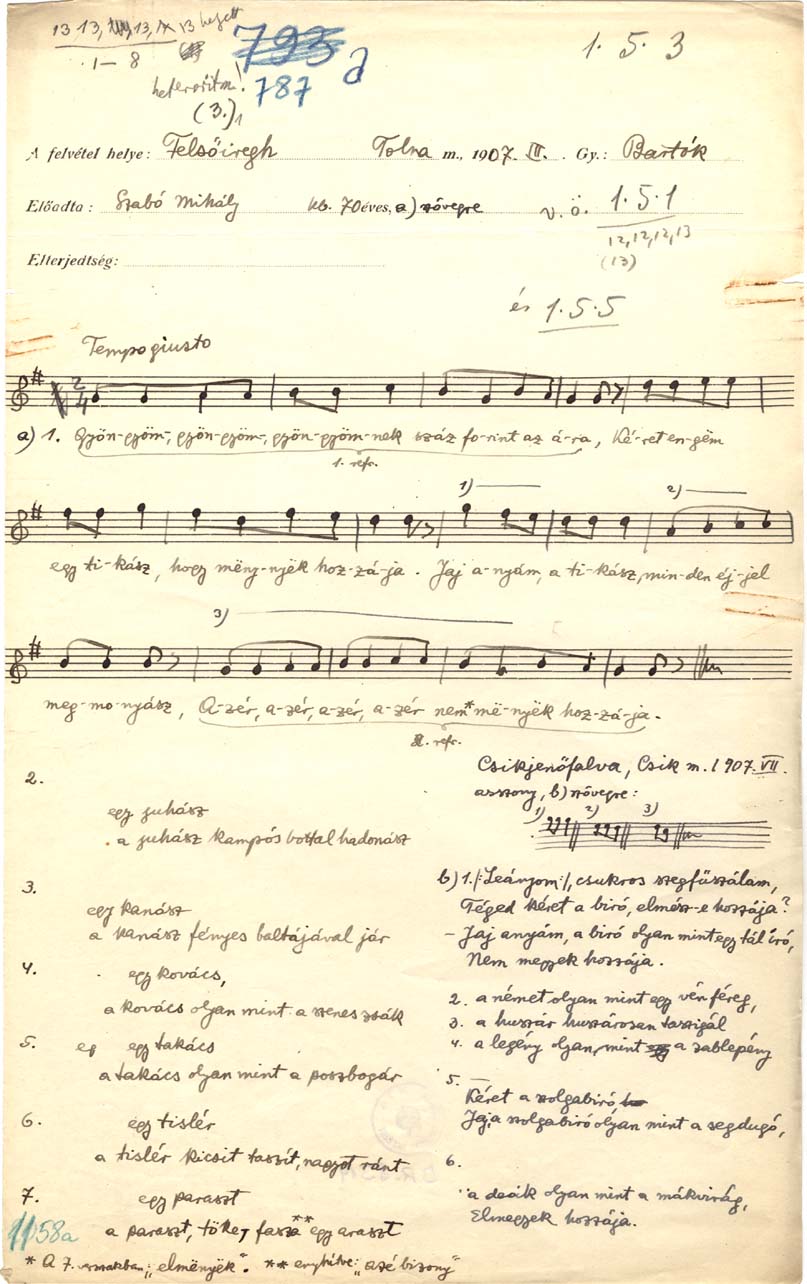 13 13, 13, 13
1–8
heterositm!
793
787
(3.)1
1.5.3
A felvétel helye: Felsőiregh Tolna m., 1907. III. Gy.: Bartók
Előadta: Szabó Mihály kb. 70 éves, a) szövegre v.ö. 1.5.1
12,12,12,13
(13)
Elterjedtség:
és 1.5.5
Tempo giusto
2
4
a) 1. Gyön-gyöm-, gyön-gyöm-, gyön-gyöm-nek száz fo-rint az á-ra, Ké-ret en-gëm
1. refr.
1) 2)
egy ti-kász, hogy mëny-nyëk hoz-zá-ja. Jaj a-nyám, a ti-kász, min-den éj-jel
3)
meg-mo-nyász, A-zér, a-zér, a-zér, a-zér nem* më-nyëk hoz-zá-ja.
2. refr.
2.
egy juhász
a juhász kampós bottal hadonász
3.
egy kanász
a kanász fényes baltájával jár
4. egy kovács,
a kovács olyan mint a szenes zsák
5. egy takács
a takács olyan mint a poszbogár
6. egy tislér
a tislér kicsit taszít, nagyot ránt
7. egy paraszt
a paraszt, töke, fasza** egy araszt
1158a
* A 7. szakban: „elmënyëk". ** enyhítve: „azé bizony"
Csikjenőfalva, Csik m. 1907. VII.
asszony, b) szövegre:
1) 2) 3)
b) 1. /:Leányom:/, csukros szegfüszálam,
Téged kéret a biró, elmész-e hozzája?
– Jaj anyám, a biró olyan mint egy tál iró,
Nem megyek hozzája.
2. a német olyan mint egy vén féreg,
3. a huszár huszárosan taszigál
4. a legény olyan, mint a zablepény
5.
Kéret a szolgabiró,
Jaj a szolgabiró olyan mint a segdugó,
6.
a deák olyan mint a mákvirág,
Elmegyek hozzája.